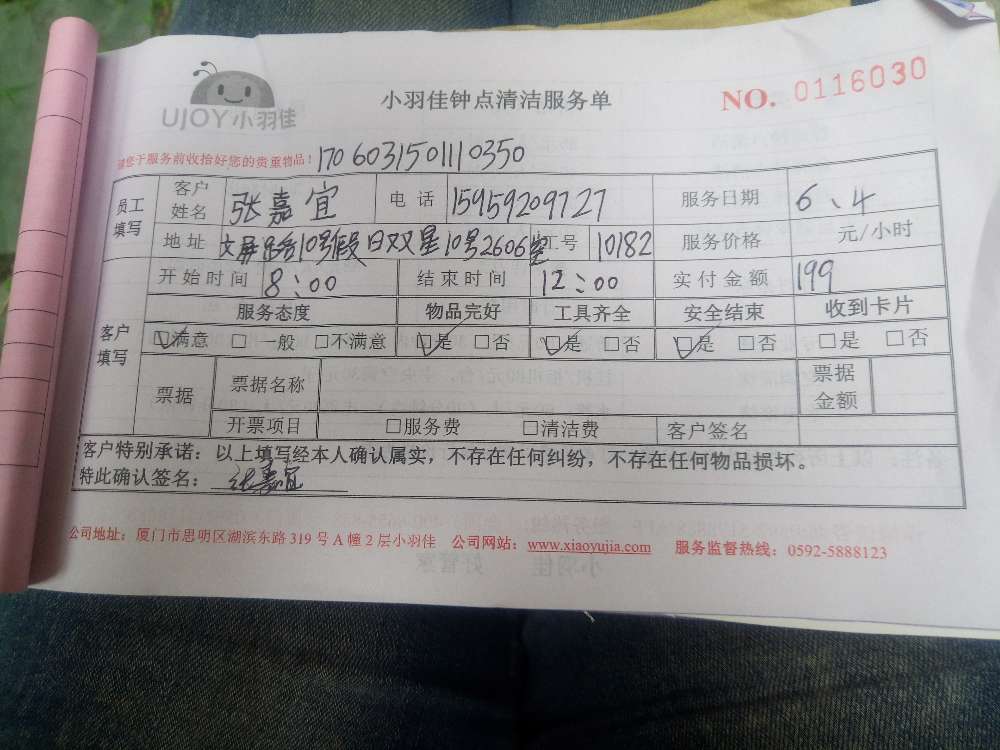 UJOY小羽佳
小羽佳钟点清洁服务单
NO. 0116030
请您于服务前收拾好您的贵重物品！
1706031501110350
员工填写 客户姓名 张嘉宜 电话 15959209727 服务日期 6、4
地址 文屏路10号假日双星10号2606室 工号 10182 服务价格 元/小时
客户填写 开始时间 8：00 结束时间 12：00 实付金额 199
服务态度 物品完好 工具齐全 安全结束 收到卡片
☑满意 □一般 □不满意 ☑是 □否 ☑是 □否 ☑是 □否 □是 □否
票据 票据名称 票据金额
开票项目 □服务费 □清洁费 客户签名
客户特别承诺：以上填写经本人确认属实，不存在任何纠纷，不存在任何物品损坏。
特此确认签名：张嘉宜
公司地址：厦门市思明区湖滨东路319号A幢2层小羽佳 公司网站：www.xiaoyujia.com 服务监督热线：0592-5888123